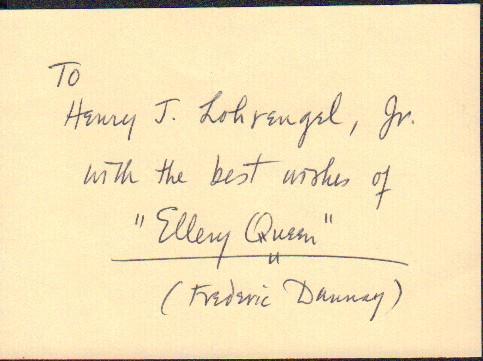 To
Henry J. Lohrengel, Jr.
with the best wishes of
"Ellery Queen"
(Frederic Dannay)